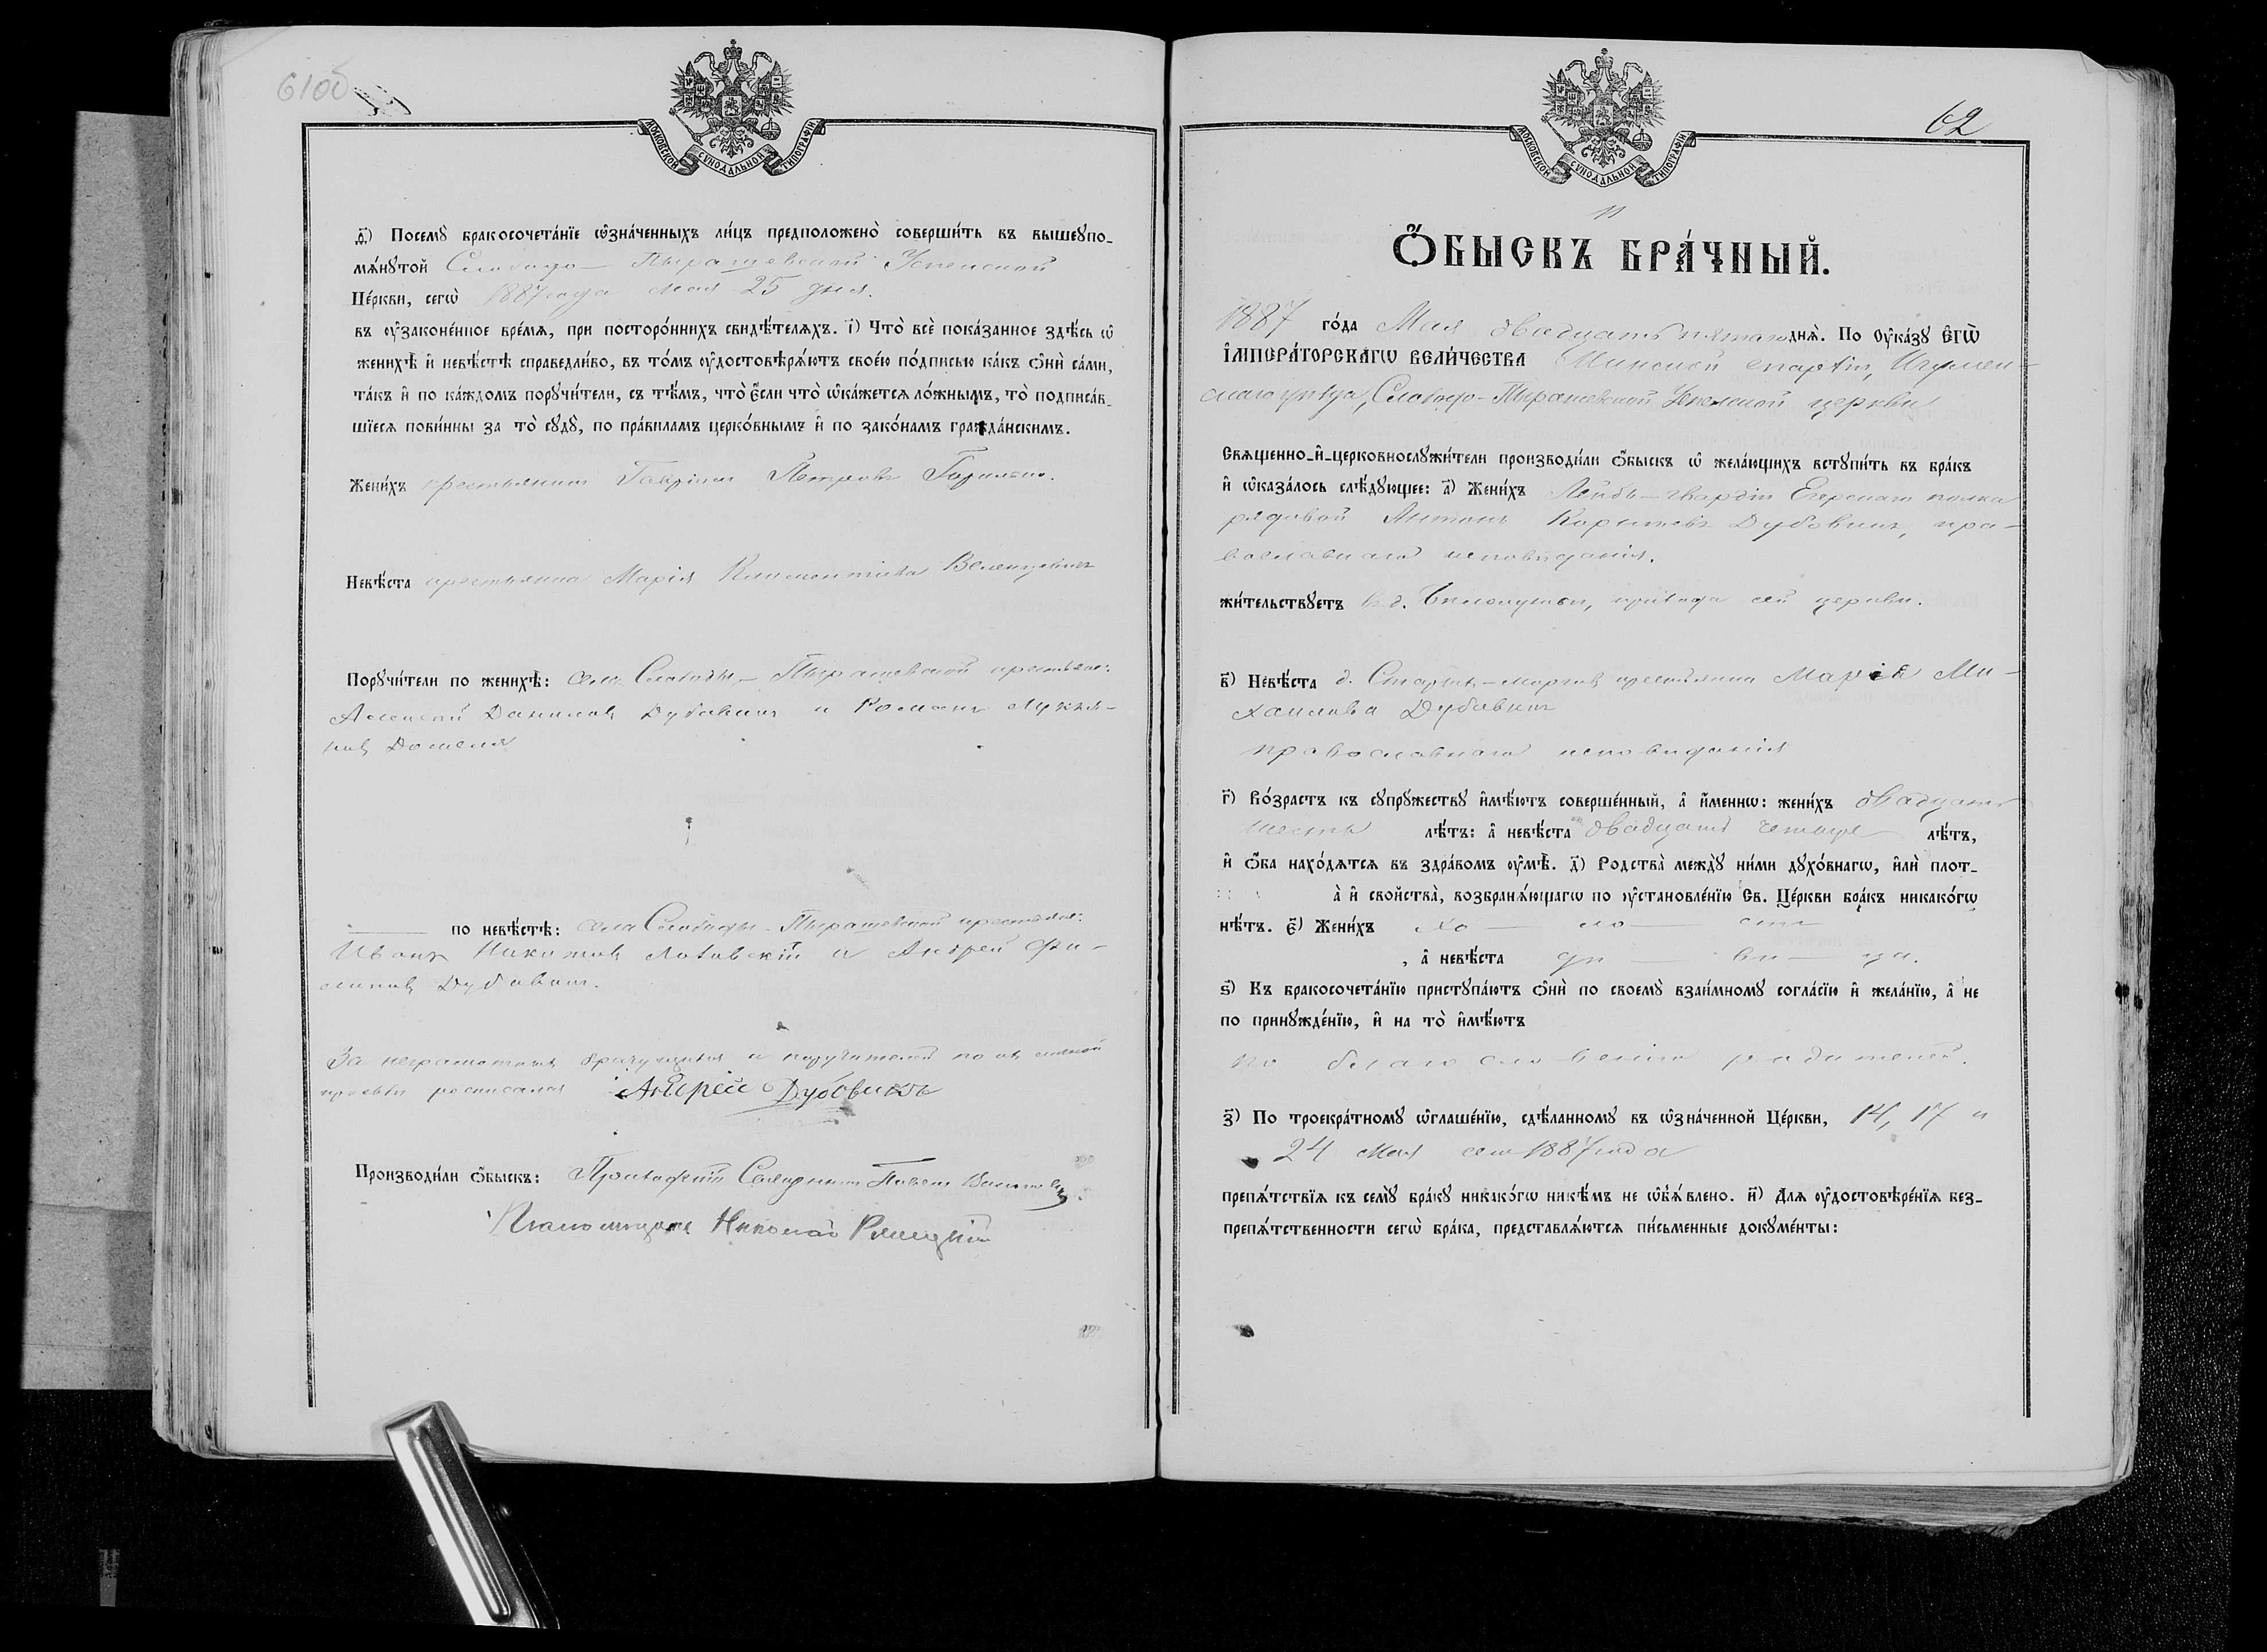 61об
МОСКОВСКОЙ СѴНОДАЛЬНОЙ ТИПОГРАФІИ
ѳ҃) Посемꙋ бракосочета́нїе ѡ҆зна́ченныхъ ли́цъ предположено̀ соверши́ть въ вышеꙋпо-
мѧ́нꙋтой Слободо-Пырашевской Успенской
Це́ркви, сегѡ̀ 1887 года мая 25 дня.
въ ᲂу҆законе́нное вре́мѧ, при посторо́ннихъ свидѣ́телѧхъ. і҃) Что̀ всѐ пока́занное здѣ́сь ѡ҆
женихѣ̀ и҆ невѣ́стѣ справедли́во, въ то́мъ ᲂу҆достовѣрѧ́ютъ свое́ю по́дписью ка́къ ѻ҆нѝ са́ми,
та́къ и҆ по ка́ждомъ порꙋчи́тели, съ тѣ́мъ, что̀ є҆́сли что̀ ѡ҆ка́жетсѧ ло́жнымъ, то̀ подписа́в-
шїесѧ пови́нны за то̀ сꙋдꙋ̀, по пра́виламъ церко́внымъ и҆ по зако́намъ гражда́нскимъ.
Жени́хъ крестьянинъ Гавріилъ Петровъ
Невѣ́ста крестьянка Марія Климентіева
Порꙋчи́тели по женихѣ̀: села Слободы-Пырашевской крестьяне:
Алексѣй Даниловъ Дубовикъ и Романъ Лукья-
новъ
по невѣ́стѣ: села Слободы-Пырашевской крестьяне:
Иванъ Никитовъ и Андрей Фи-
липовъ Дубовикъ.
За неграмотныхъ брачущихся и поручителей по ихъ личной
просьбѣ росписался Андрей Дубовикъ
Производи́ли ѻ҆́быскъ: Священникъ Павелъ
Николай
62
МОСКОВСКОЙ СѴНОДАЛЬНОЙ ТИПОГРАФІИ
11
Ѻ҆́БЫСКЪ БРА́ЧНЫЙ.
1887 го́да Мая двадцать пятаго днѧ̀. По ᲂу҆ка́зꙋ є҆гѡ̀
і҆мпера́торскагѡ вели́чества Минской епархіи, Игумен-
скаго уѣзда, Слободо-Пырашевской Успенской церкви
Свѧщенно-и҆-церковнослꙋжи́тели производи́ли ѻ҆́быскъ ѡ҆ жела́ющихъ встꙋпи́ть въ бра́къ
и҆ ѡ҆каза́лось слѣ́дꙋющее: а҃) Жени́хъ Лейбъ-гвардіи Егерскаго полка
рядовой Антонъ Дубовикъ, пра-
вославнаго исповѣданія.
жи́тельствꙋетъ въ д. прихода сей церкви.
в҃) Невѣ́ста д. крестьянка Марія Ми-
хаилова Дубовикъ
православнаго исповѣданія
г҃) Во́зрастъ къ сꙋпрꙋ́жествꙋ и҆мѣ́ютъ соверше́нный, а҆ и҆́меннѡ: жени́хъ двадцать
шесть лѣ́тъ: а҆ невѣ́ста двадцать четыре лѣ́тъ,
и҆ ѻ҆́ба нахо́дѧтсѧ въ здра́вомъ ᲂу҆мѣ̀. д҃) Родства̀ междꙋ̀ ни́ми дꙋхо́внагѡ, и҆лѝ плот-
а̀ и҆ сво́йства̀, возбранѧ́ющагѡ по ᲂу҆становле́нїю Св. Це́ркви бра́къ никако́гѡ
нѣ́тъ. є҃) Жени́хъ хо — ло — стъ
, а҆ невѣ́ста дѣ — ви — ца.
ѕ҃) Къ бракосочета́нїю пристꙋпа́ютъ ѻ҆нѝ по своемꙋ̀ взаи́мномꙋ согла́сїю и҆ жела́нїю, а҆ не
по принꙋжде́нїю, и҆ на то̀ и҆мѣ́ютъ
по благословенію родителей.
з҃) По троекра́тномꙋ ѡ҆глаше́нїю, сдѣ́ланномꙋ въ ѡ҆зна́ченной Це́ркви, 14, 17 и
24 мая сего 1887 года
препѧ́тствїѧ къ семꙋ̀ бра́кꙋ никако́гѡ никѣ́мъ не ѡ҆б̾ѧ́влено. и҃) Для ᲂу҆достовѣре́нїѧ без-
препѧ́тственности сегѡ̀ бра́ка, представлѧ́ютсѧ пи́сьменные докꙋме́нты: